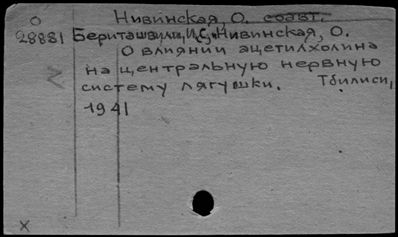 О Нивинская, О. соавт.
28881 Бериташвили, И.С., и Нивинская, О.
О влиянии ацетилхолина
на центральную нервную
систему лягушки. Тбилиси,
1941
х